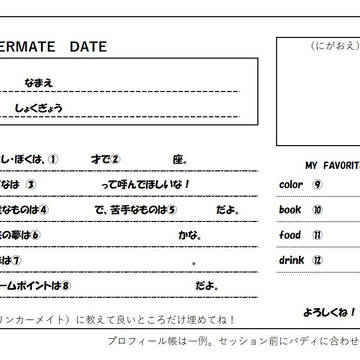 ERMATE DATE
（にがおえ）
なまえ
しょくぎょう
し・ぼくは、① 才で② 座。
なは ③ って呼んでほしいな！
なものは④ で、苦手なものは⑤ だよ。
の夢は⑥ かな。
は⑦ 。
ームポイントは⑧ だよ。
MY FAVORIT
color ⑨
book ⑩
food ⑪
drink ⑫
よろしくね！
リンカーメイト）に教えて良いところだけ埋めてね！
プロフィール帳は一例。セッション前にバディに合わせ